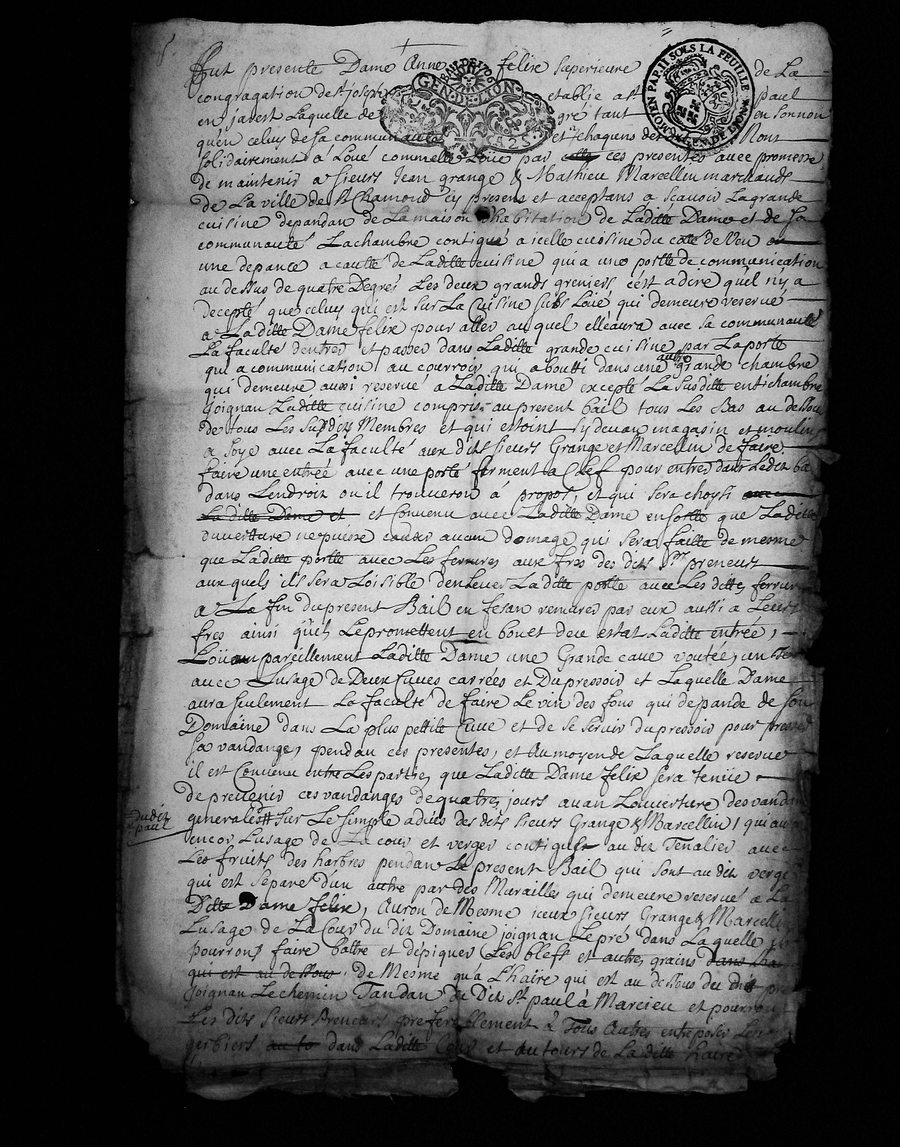 Fut presente Dame Anne felix Superieure de La
congragation de St joseph etablie a St paul
en jarest Laquelle de gre tant en son nom
qu'en celuy de sa communauté et chaquns de Nom
solidairement a Loué comme Loue par ces presentes avec promesse
de maintenir a sieurs Jean grange & Mathieu Marcellin marchands
de La ville de St Chamond cy presens et acceptans a scavoir La grande
cuisine depandan de La maison d'habitation de Laditte Dame et de sa
communauté La chambre contigue a icelle cuisine du coté de Ven
une depance a cauté de Laditte cuisine qui a une portte de communication
au dessus de quatre Degrés Les deux grands greniers c'est a dire qu'il n'y a
decepté que celuy qui est sur La Cuisine qui demeure reservé
a Laditte Dame felix pour aller auquel elle aura avec sa communauté
La faculté d'entrer et passer dans Laditte grande cuisine par La porte
qui a communication au courroir qui a boutti dans une autre grande chambre
qui demeure aussi reservé a Laditte Dame excepté La susditte entichambre
joignan Laditte cuisine compris au present bail tous Les Bas au dessous
de tous Les susdits Membres et qui estoint cy devan magasin et moulins
a soye avec La faculté aux dits sieurs Grange et Marcellin de faire
faire une entrée avec une porte ferment a Clef pour entrer dans Lesdits ba
dans L'endroit ou il trouveron à propos, et qui sera choysi
Laditte Dame et et Convenu avec Laditte Dame en sortte que Laditte
ouverture ne puisse causer aucun domage qui sera faitte de mesme
que Laditte portte avec Les ferrures aux fres des dits Srs preneurs
aux quels il sera Loisible d'enlever Laditte porte avec Les dittes ferrur
a La fin du present Bail en fesan remures par eux aussi a Leurs
fres ainsi qu'ils Le promettent en bon et deu estat Laditte entrée,
Loüan pareillement Laditte Dame une Grande cave voutée, un
avec Lusage de Deux Cuves carrées et Du pressoir et Laquelle Dame
aura seulement La faculté de faire Le vin des fons qui depande de son
Domaine dans La plus pettite Cuve et de se servir du pressoir pour presser
sa vandange, pendan ces presentes, et Au moyen de Laquelle reserve
il est Convenu entre Les parties que Laditte Dame felix sera tenüe
de prevenir ces vandanges de quatre jours avan L'ouverture des vandan
generales # sur Le simple advis des dits sieurs Grange & Marcellin, qui au
# dudit St paul
encor Lusage de La cour et verger contigue au dit Tenalier avec
Les fruits des harbres pendan Le present Bail qui sont au dit verge
qui est separé d'un autre par des Murailles qui demeure reservé a La
Ditte Dame felix, Auron de Mesme iceux sieurs Grange & Marcellin
Lusage de La Cour du dit Domaine joignan Le pré dans Laquelle
pourron faire battre et depiquer Les bleds et autres grains dans
qui est au dessous, de Mesme qu'a L'haire qui est au dessous du dit pré
joignan Le chemin Tandan du Dit St paul à Marcieu et pourron
Les dits sieurs Preneurs preferablement à Tous Autres entreposer Leur
gerbiers au to dans Laditte Cour et au tours de La ditte haire